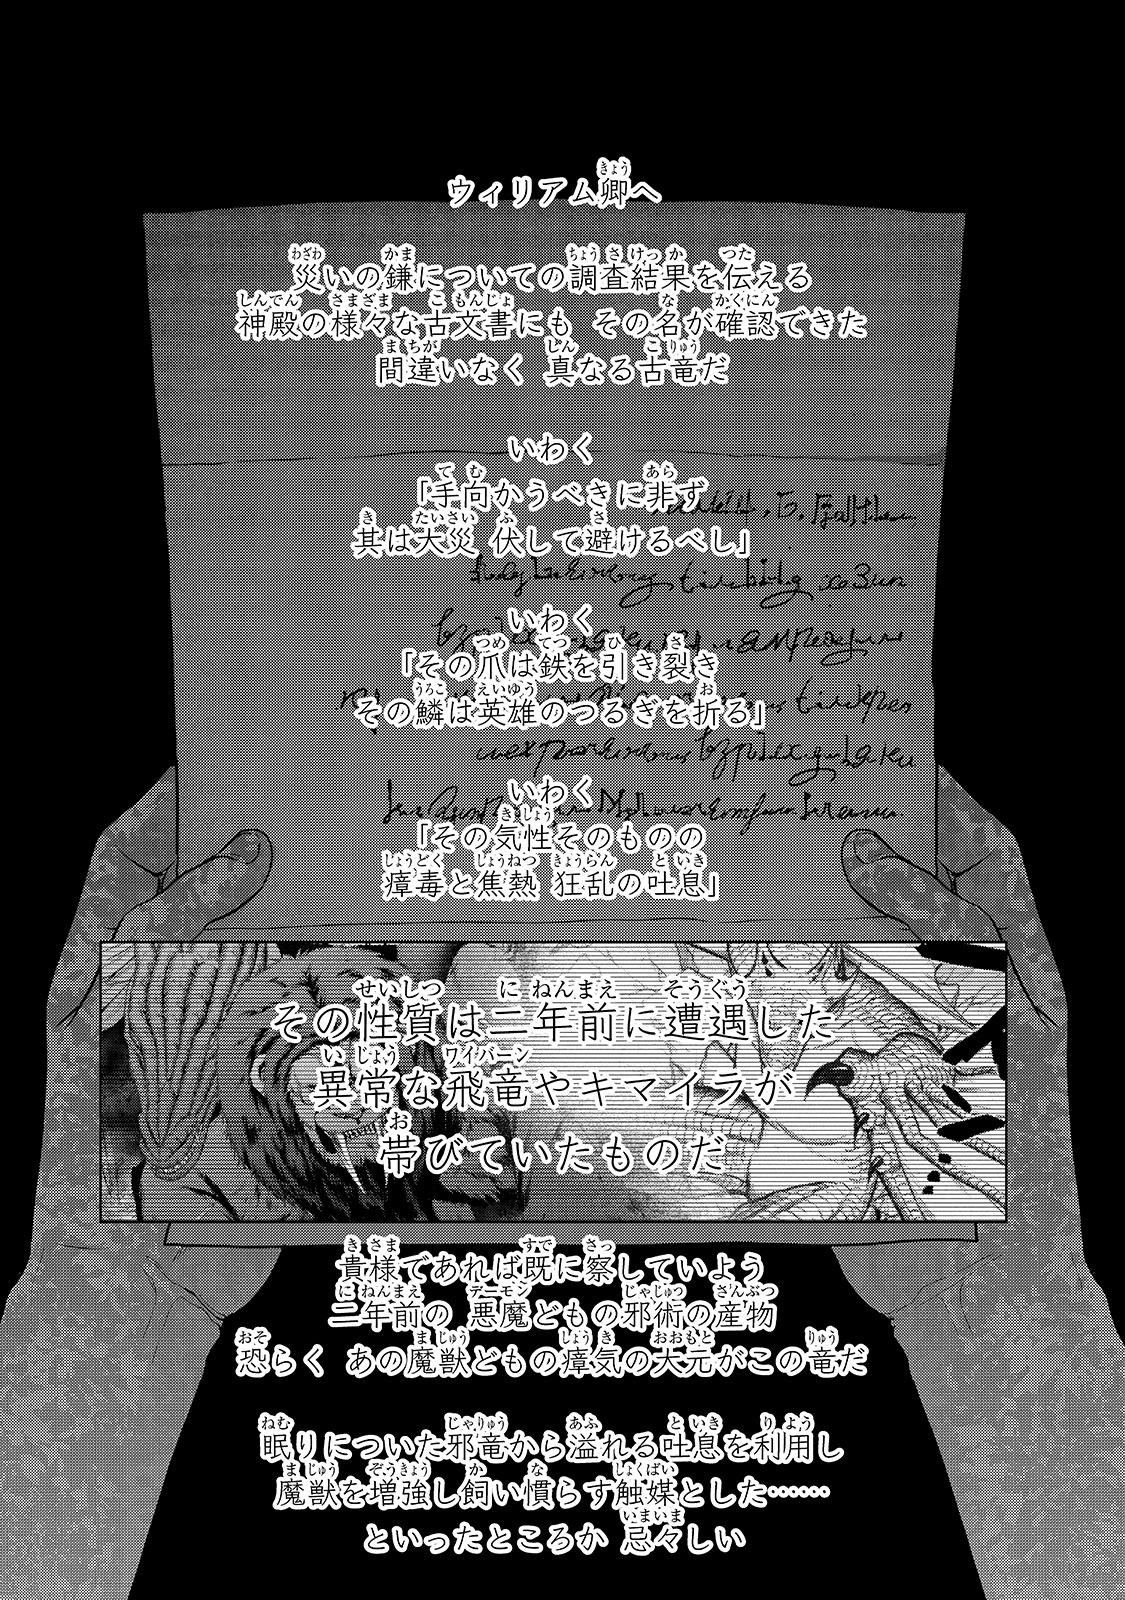 ウィリアム卿へ
災いの鎌についての調査結果を伝える
神殿の様々な古文書にも その名が確認できた
間違いなく 真なる古竜だ
いわく
「手向かうべきに非ず
其は大災 伏して避けるべし」
いわく
「その爪は鉄を引き裂き
その鱗は英雄のつるぎを折る」
いわく
「その気性そのものの
瘴毒と焦熱 狂乱の吐息」
その性質は二年前に遭遇した
異常な飛竜やキマイラが
帯びていたものだ
貴様であれば既に察していよう
二年前の 悪魔どもの邪術の産物
恐らく あの魔獣どもの瘴気の大元がこの竜だ
眠りについた邪竜から溢れる吐息を利用し
魔獣を増強し飼い慣らす触媒とした……
といったところか 忌々しい